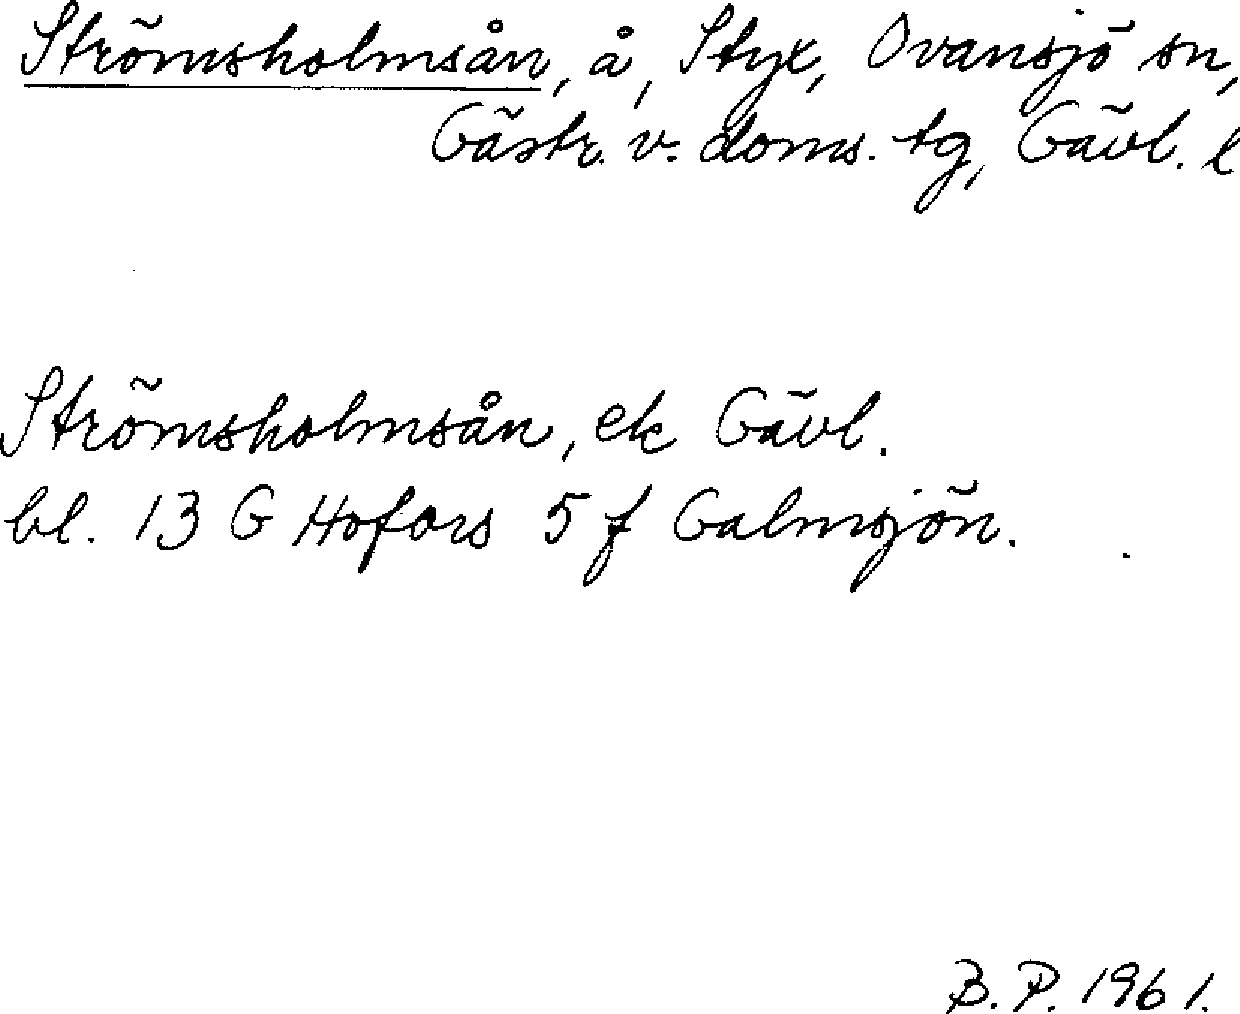 Strömsholmsån, å, Styx, Ovansjö sn,
Gästr. v. doms. tg, Gävl. l
Strömsholmsån, ek Gävl.
bl. 13 G Hofors 5 f Galmsjön.
B. P. 1961.